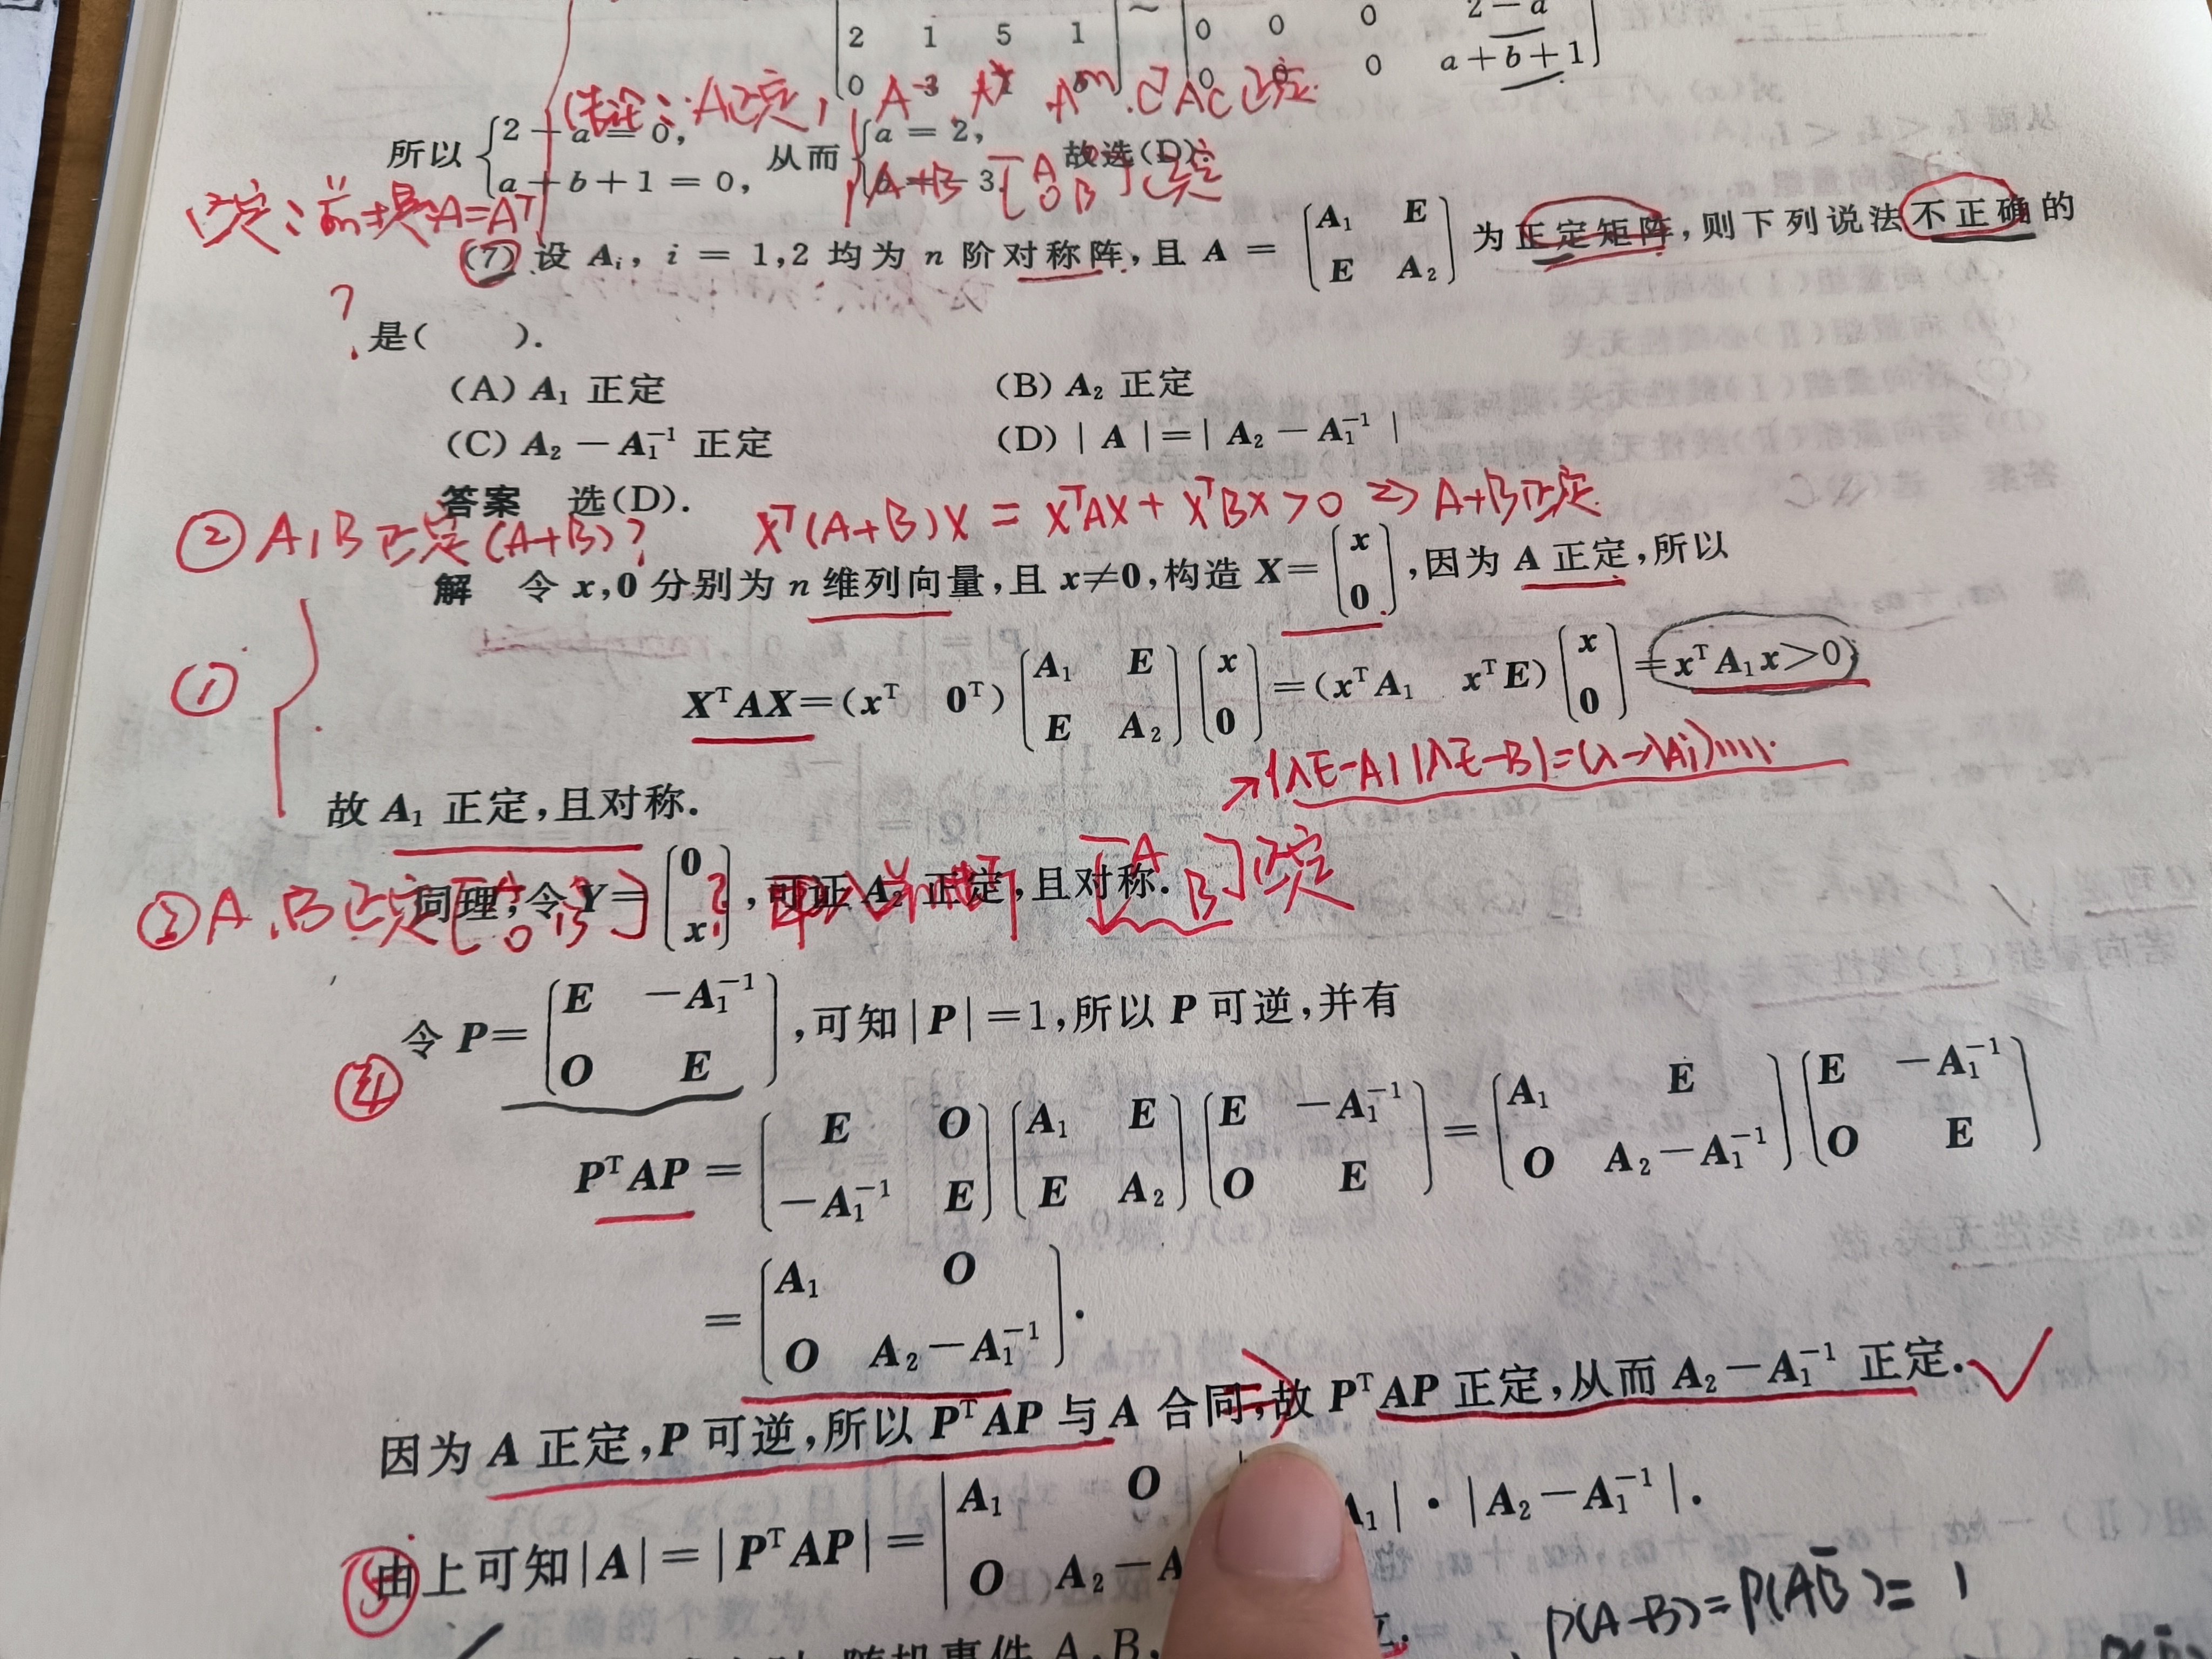 2 1 5 1 ~ 0 0 0 2－a
0 3 1 0 0 0 a＋b＋1
结论：A正定, A⁻¹ A* Aᵐ CᵀAC 正定.
所以 {2－a＝0, a＋b＋1＝0, 从而 {a＝2, b＝－3. 故选(D).
A+B [A O B] 正定
正定：前提：A=Aᵀ
(7) 设 A₁, i＝1,2 均为 n 阶对称阵,且 A＝(A₁ E; E A₂) 为正定矩阵,则下列说法不正确的
?
是(　　).
(A) A₁ 正定　(B) A₂ 正定
(C) A₂－A₁⁻¹ 正定　(D) |A|＝|A₂－A₁⁻¹|
答案　选(D).
② A,B正定 (A+B)?　Xᵀ(A+B)X = XᵀAX + XᵀBX > 0 ⇒ A+B正定
解　令 x,0 分别为 n 维列向量,且 x≠0,构造 X＝(x; 0),因为 A 正定,所以
①
XᵀAX＝(xᵀ 0ᵀ)(A₁ E; E A₂)(x; 0)＝(xᵀA₁ xᵀE)(x; 0)＝xᵀA₁x>0
→|λE-A||λE-B|=(λ-λAi)……
故 A₁ 正定,且对称.
同理,令 Y＝(0; x),可证 A₂ 正定,且对称.
③ A,B正定 [A O B]? [A B]正定
令 P＝(E －A₁⁻¹; O E),可知|P|＝1,所以 P 可逆,并有
④
PᵀAP＝(E O; －A₁⁻¹ E)(A₁ E; E A₂)(E －A₁⁻¹; O E)＝(A₁ E; O A₂－A₁⁻¹)(E －A₁⁻¹; O E)
＝(A₁ O; O A₂－A₁⁻¹).
因为 A 正定,P 可逆,所以 PᵀAP 与 A 合同,故 PᵀAP 正定,从而 A₂－A₁⁻¹ 正定.
⑤
由上可知|A|＝|PᵀAP|＝|A₁ O; O A₂－A A₁|·|A₂－A₁⁻¹|.
P(A-B)=P(AB̄)= 1
随机事件 A,B,